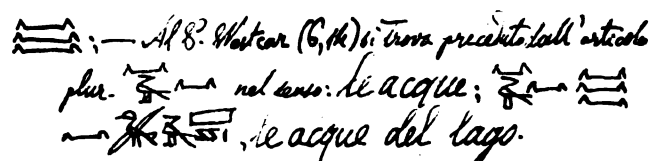 𓈗 ; — Al P. Westcar (6, 12) si trova preceduto dall'articolo
plur. nel senso: le acque; 𓈗
, le acque del lago.